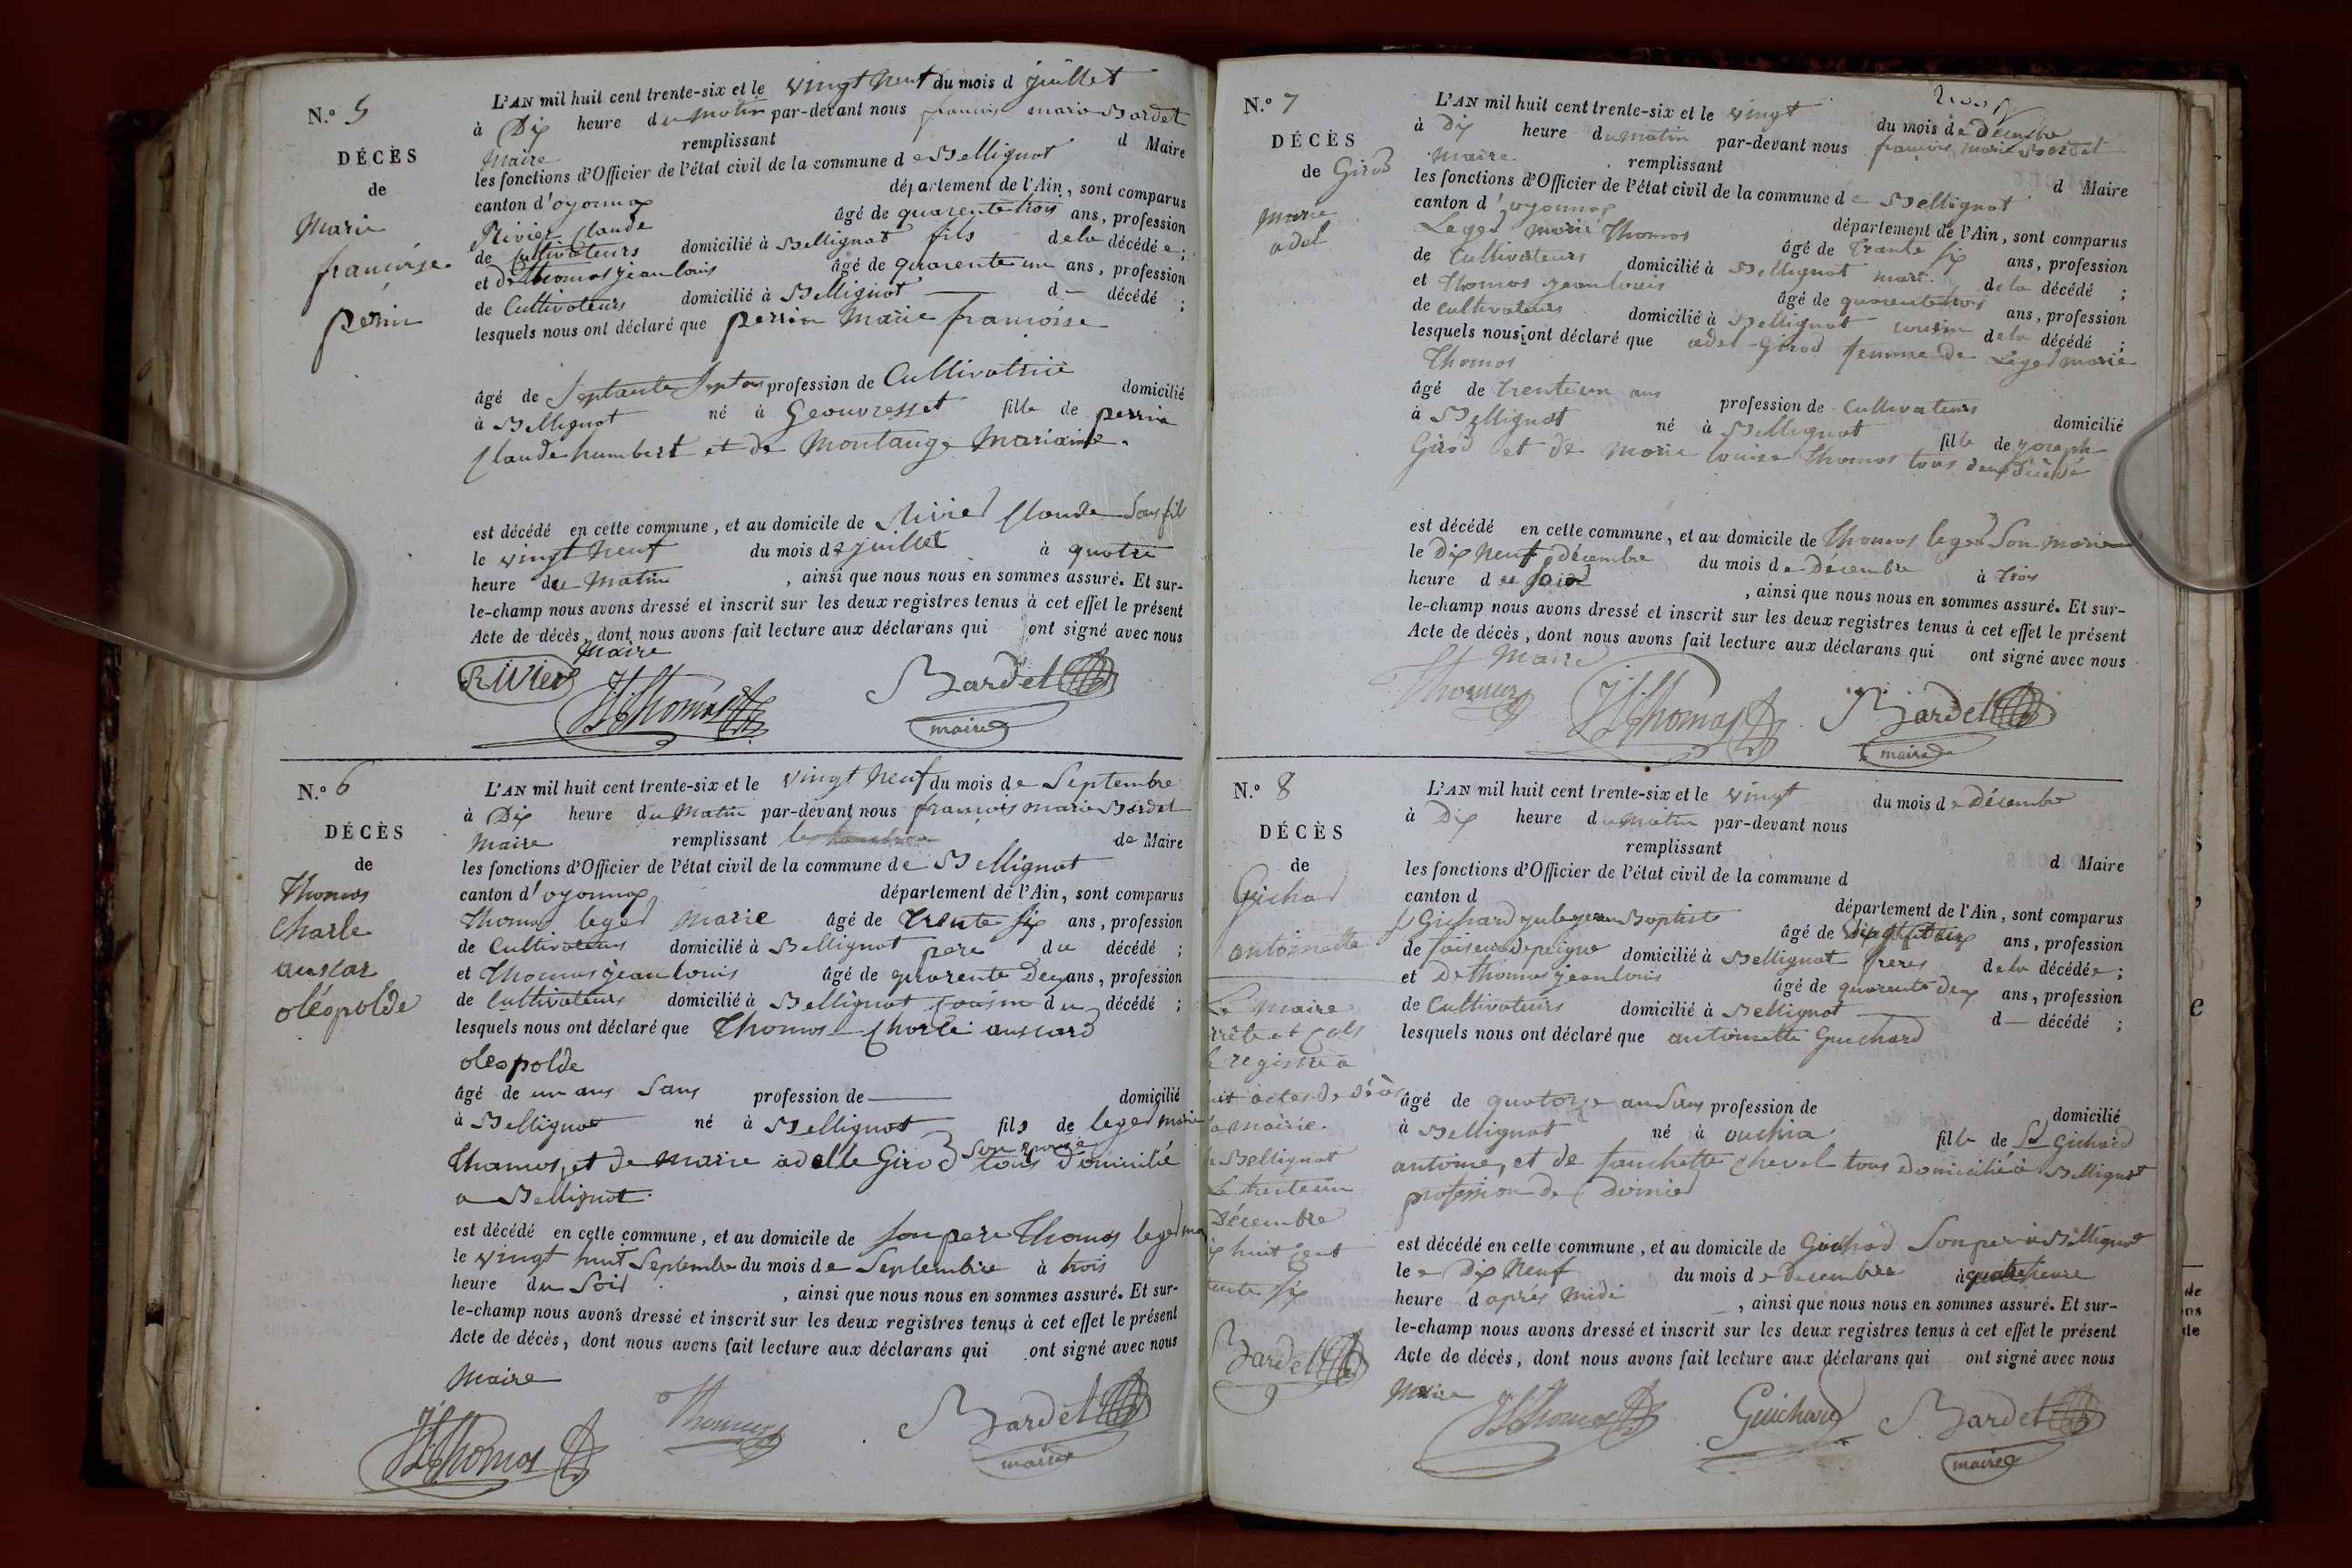 N.º 5
DÉCÈS
de
Marie
françoise
perin
L'AN mil huit cent trente-six et le vingt neuf du mois d juillet
à Dix heure du matin par-devant nous françois marie Bardet
Maire remplissant d Maire
les fonctions d'Officier de l'état civil de la commune de Bellignat
canton d'oyonnax département de l'Ain, sont comparus
Rivier Claude âgé de quarente trois ans, profession
de Cultivateurs domicilié à Bellignat fils dela décédée;
et de thomas jean louis âgé de quarente un ans, profession
de Cultivateurs domicilié à Bellignat — d — décédé ;
lesquels nous ont déclaré que perrin Marie francoise
âgé de Septante Sept ans profession de Cultivatrice domicilié
à Bellignat né à Geouvresset fille de perrin
Claude humbert et de Montange Mariaime.
est décédé en cette commune, et au domicile de Rivier Claude Son fils
le vingt neuf du mois de juillet à quatre
heure du Matin , ainsi que nous nous en sommes assuré. Et sur-
le-champ nous avons dressé et inscrit sur les deux registres tenus à cet effet le présent
Acte de décès, dont nous avons fait lecture aux déclarans qui ont signé avec nous
Maire
Rivier
JLThomas
Bardet
maire
N.º 6
DÉCÈS
de
Thomas
Charle
auscar
oléopolde
L'AN mil huit cent trente-six et le vingt neuf du mois de Septembre
à Dix heure du Matin par-devant nous françois marie Bardet
Maire remplissant les de Maire
les fonctions d'Officier de l'état civil de la commune de Bellignat
canton d'oyonnax département de l'Ain, sont comparus
Thomas leger Marie âgé de Trente Six ans, profession
de Cultivateurs domicilié à Bellignat pere du décédé ;
et Thomas jean louis âgé de quarente Deux ans, profession
de Cultivateurs domicilié à Bellignat cousin du décédé ;
lesquels nous ont déclaré que Thomas Charle auscard
oleopolde
âgé de un ans Sans profession de — domicilié
à Bellignat né à Bellignat fils de leger marie
Thomas, et de Marie adelle Girod Son epouse tous domicilié
a Bellignat.
est décédé en cette commune, et au domicile de Son pere Thomas leger ma
le vingt huit Septembre du mois de Septembre à trois
heure du Soir , ainsi que nous nous en sommes assuré. Et sur-
le-champ nous avons dressé et inscrit sur les deux registres tenus à cet effet le présent
Acte de décès, dont nous avons fait lecture aux déclarans qui ont signé avec nous
Maire
JLThomas
Thomas
Bardet
maire
N.º 7
DÉCÈS
de Girod
Marie
adel
L'AN mil huit cent trente-six et le vingt du mois de Décembre
à Dix heure du matin par-devant nous françois marie Bardet
Maire remplissant d Maire
les fonctions d'Officier de l'état civil de la commune de Bellignat
canton d'oyonnax département de l'Ain, sont comparus
Leger Marie Thomas âgé de Trante Six ans, profession
de Cultivateurs domicilié à Bellignat mari dela décédé ;
et Thomas jean louis âgé de quarente trois ans, profession
de cultivateurs domicilié à Bellignat cousin dela décédé ;
lesquels nous ont déclaré que adel Girod femme de Leger marie
Thomas
âgé de trente un ans profession de Cultivateurs domicilié
à Bellignat né à Bellignat fille de joseph
Girod et de Marie louise Thomas tous deux décédé
est décédé en cette commune, et au domicile de Thomas leger Son marie
le Dix Neuf décembre du mois de Décembre à Trois
heure du Soir , ainsi que nous nous en sommes assuré. Et sur-
le-champ nous avons dressé et inscrit sur les deux registres tenus à cet effet le présent
Acte de décès, dont nous avons fait lecture aux déclarans qui ont signé avec nous
Maire
Thomas
JLThomas
Bardet
maire
N.º 8
DÉCÈS
de
Guichar
antoinette
Le Maire
rrête et Cols
l registre a
uit actes de décès
a mairie.
Bellignat
Le trente un
Décembre
ix huit cent
trente Six
Bardet
L'AN mil huit cent trente-six et le vingt du mois de Décembre
à Dix heure du matin par-devant nous
remplissant d Maire
les fonctions d'Officier de l'état civil de la commune d
canton d département de l'Ain, sont comparus
Guichard jule jean Baptiste âgé de ans, profession
de faiseur de peigne domicilié à Bellignat freres dela décédée;
et De thomas jean louis âgé de quarente deux ans, profession
de Cultivateurs domicilié à Bellignat — d — décédé ;
lesquels nous ont déclaré que antoinette Guichard
âgé de quatorze an Sans profession de domicilié
à Bellignat né à ouchia fille de Guichard
antoine, et de fanchette Chevel tous domicilié à Bellignat
profession de
est décédé en cette commune, et au domicile de Guichard Son per à Bellignat
le Dix Neuf du mois de Decembre à quatre heure
heure d apres Midi , ainsi que nous nous en sommes assuré. Et sur-
le-champ nous avons dressé et inscrit sur les deux registres tenus à cet effet le présent
Acte de décès, dont nous avons fait lecture aux déclarans qui ont signé avec nous
Maire
JLThomas
Guichard
Bardet
maire